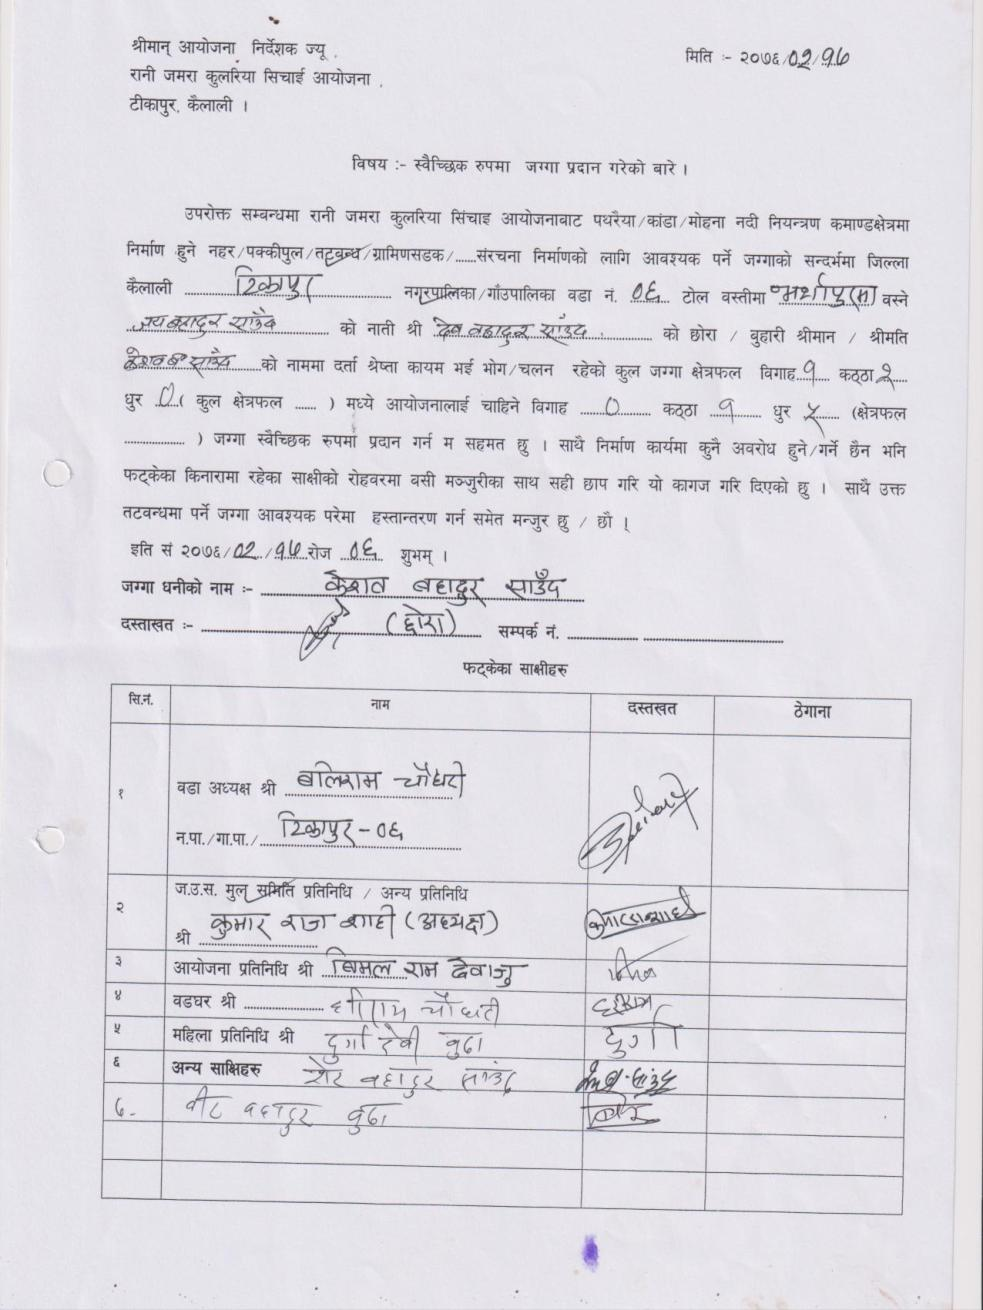 श्रीमान् आयोजना निर्देशक ज्यू .
मिति :- २०७६/02/१७
रानी जमरा कुलरिया सिचाई आयोजना .
टीकापुर, कैलाली ।
विषय :- स्वैच्छिक रुपमा जग्गा प्रदान गरेको बारे ।
उपरोक्त सम्बन्धमा रानी जमरा कुलरिया सिंचाइ आयोजनाबाट पथरैया/कांडा/मोहना नदी नियन्त्रण कमाण्डक्षेत्रमा
निर्माण हुने नहर/पक्कीपुल/तटबन्ध/ग्रामिणसडक/......संरचना निर्माणको लागि आवश्यक पर्ने जग्गाको सन्दर्भमा जिल्ला
कैलाली टिकापुर नगरपालिका/गाँउपालिका वडा नं. ०६ टोल वस्तीमा वस्ने
जय बहादुर साउँद को नाती श्री देव बहादुर साउँद को छोरा / बुहारी श्रीमान / श्रीमति
केशव ब. साउँद को नाममा दर्ता श्रेष्ता कायम भई भोग/चलन रहेको कुल जग्गा क्षेत्रफल विगाह १ कठ्ठा २
धुर 0 ( कुल क्षेत्रफल ...... ) मध्ये आयोजनालाई चाहिने विगाह 0 कठ्ठा १ धुर ५ (क्षेत्रफल
................ ) जग्गा स्वैच्छिक रुपमा प्रदान गर्न म सहमत छु । साथै निर्माण कार्यमा कुनै अवरोध हुने/गर्ने छैन भनि
फट्केका किनारामा रहेका साक्षीको रोहवरमा वसी मञ्जुरीका साथ सही छाप गरि यो कागज गरि दिएको छु । साथै उक्त
तटवन्धमा पर्ने जग्गा आवश्यक परेमा हस्तान्तरण गर्न समेत मन्जुर छु / छौ ।
इति सं २०७६/02/१७ रोज ०६ शुभम् ।
जग्गा धनीको नाम :- केशव बहादुर साउँद
दस्ताखत :- (छोरा) सम्पर्क नं. .................. ....................................
फट्केका साक्षीहरु
सि.नं. नाम दस्तखत ठेगाना
१ वडा अध्यक्ष श्री बलिराम चौधरी
न.पा./गा.पा./ टिकापुर - ०६
२ ज.उ.स. मुल समिति प्रतिनिधि / अन्य प्रतिनिधि
श्री कुमार राज शाही (अध्यक्ष)
३ आयोजना प्रतिनिधि श्री बिमल राम देवाजु
४ वडघर श्री चौधरी
५ महिला प्रतिनिधि श्री दुर्गा देवी बुढा दुर्गा
६ अन्य साक्षिहरु शेर बहादुर साउँद
७- वीर बहादुर बुढा